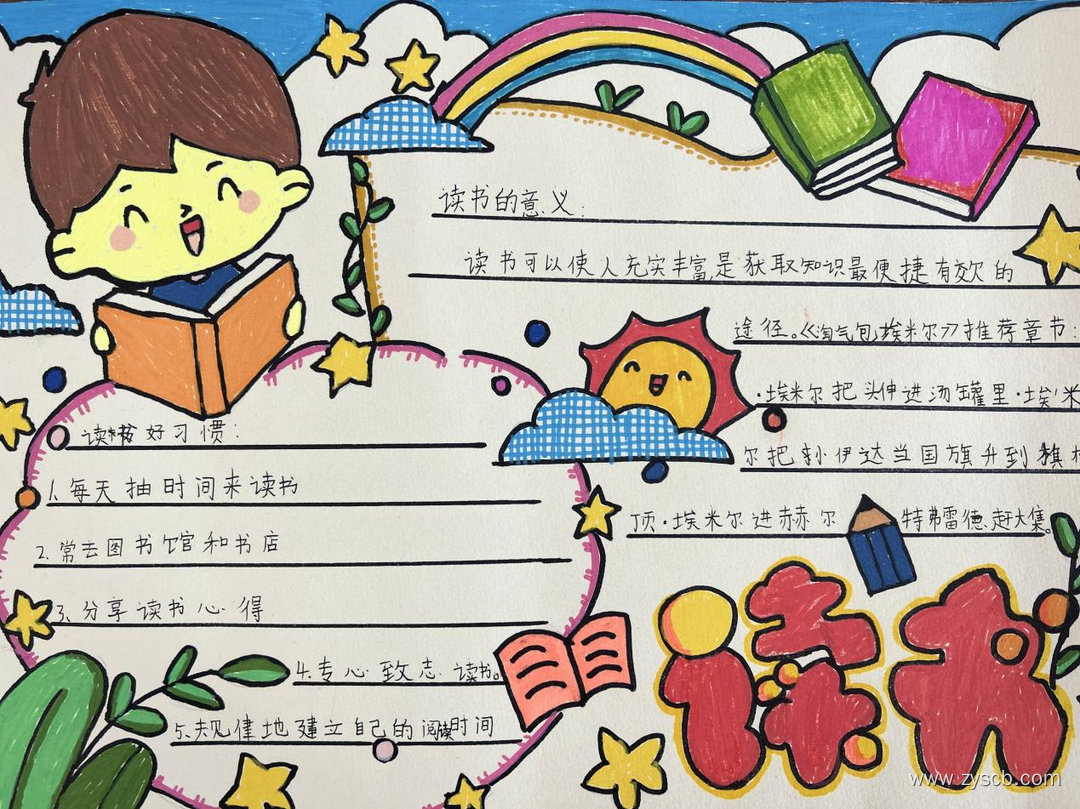 读书的意义:
读书可以使人充实丰富,是获取知识最便捷有效的
途径。《淘气包埃米尔》推荐章节:
·埃米尔把头伸进汤罐里·埃米
尔把小伊达当国旗升到旗
顶·埃米尔进赫尔特弗雷德赶大集。
读书好习惯:
1.每天抽时间来读书
2.常去图书馆和书店
3.分享读书心得
4.专心致志读书。
5.规律地建立自己的阅读时间
读书
www.zyscb.com